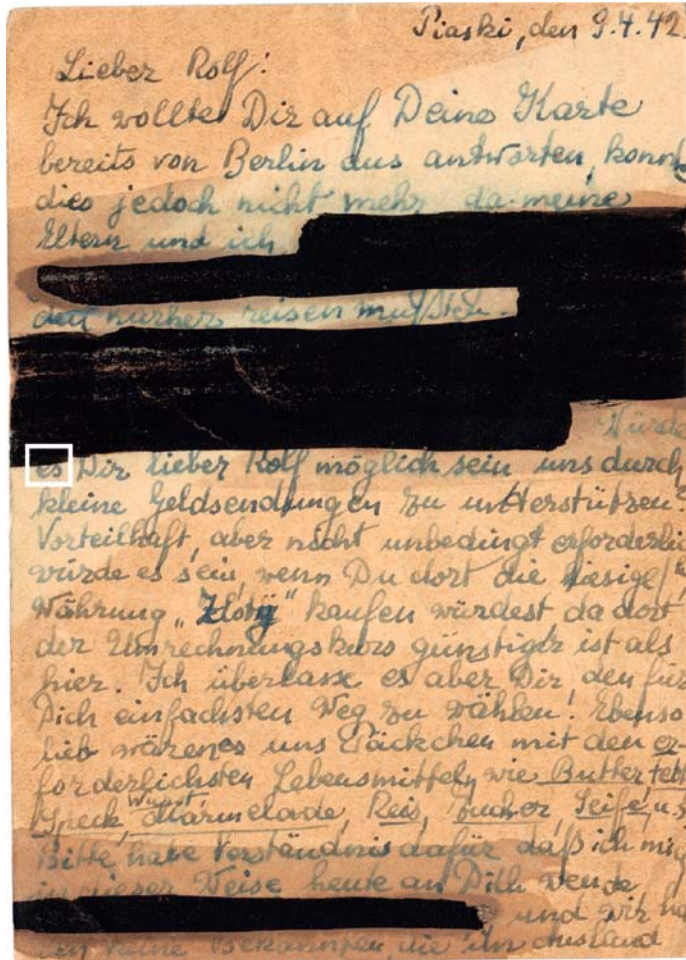 Piaski, den 9.4.42.
Lieber Rolf!
Ich wollte Dir auf Deine Karte
bereits von Berlin aus antworten, konnte
dies jedoch nicht mehr da meine
Eltern und ich
reisen mußten.
Würde
es Dir lieber Rolf möglich sein uns durch
kleine Geldsendungen zu unterstützen?
Vorteilhaft, aber nicht unbedingt erforderlich
würde es sein, wenn Du dort die hiesige
Währung „Zloty" kaufen würdest da dort
der Umrechnungskurs günstiger ist als
hier. Ich überlasse es aber Dir, den für
Dich einfachsten Weg zu wählen! Ebenso
lieb wären es uns Päckchen mit den er-
forderlichsten Lebensmitteln wie Butter Fett
Speck, Wurst, Marmelade, Reis, Zucker, Seife, u.s
Bitte habe Verständnis dafür daß ich mich
in dieser Weise heute an Dich wende
und wir ha
ben keine Bekannten, die im Ausland